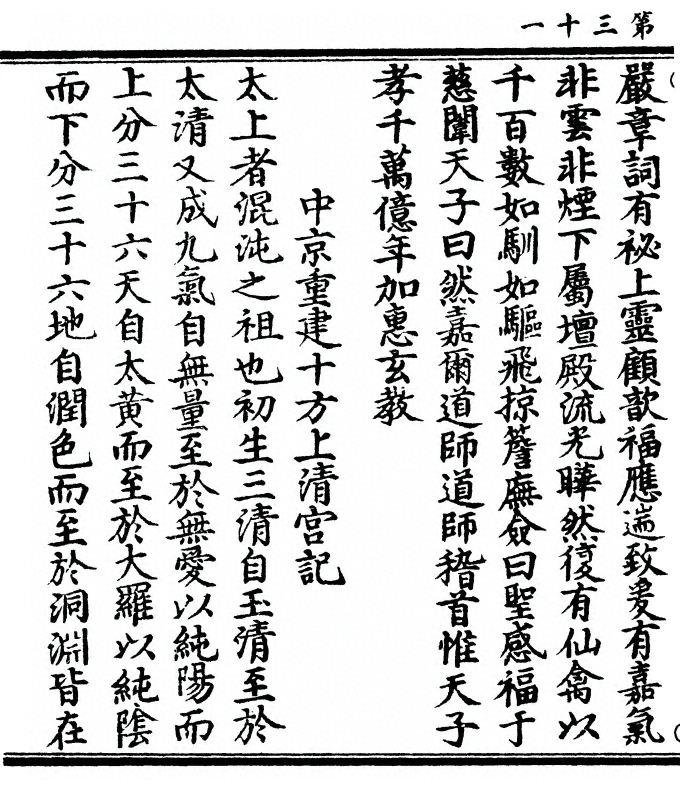 第三十一
嚴章詞有祕上靈顧歆福應遄致爰有嘉氣
非雲非煙下屬壇殿流光曄然後有仙禽以
千百數如馴如驅飛掠簷廡僉曰聖感福于
慈闈天子曰然嘉爾道師道師稽首惟天子
孝千萬億年加惠玄教
中京重建十方上清宮記
太上者混沌之祖也初生三清自玉清至於
太清又成九氣自無量至於無愛以純陽而
上分三十六天自太黃而至於大羅以純陰
而下分三十六地自潤色而至於洞淵皆在